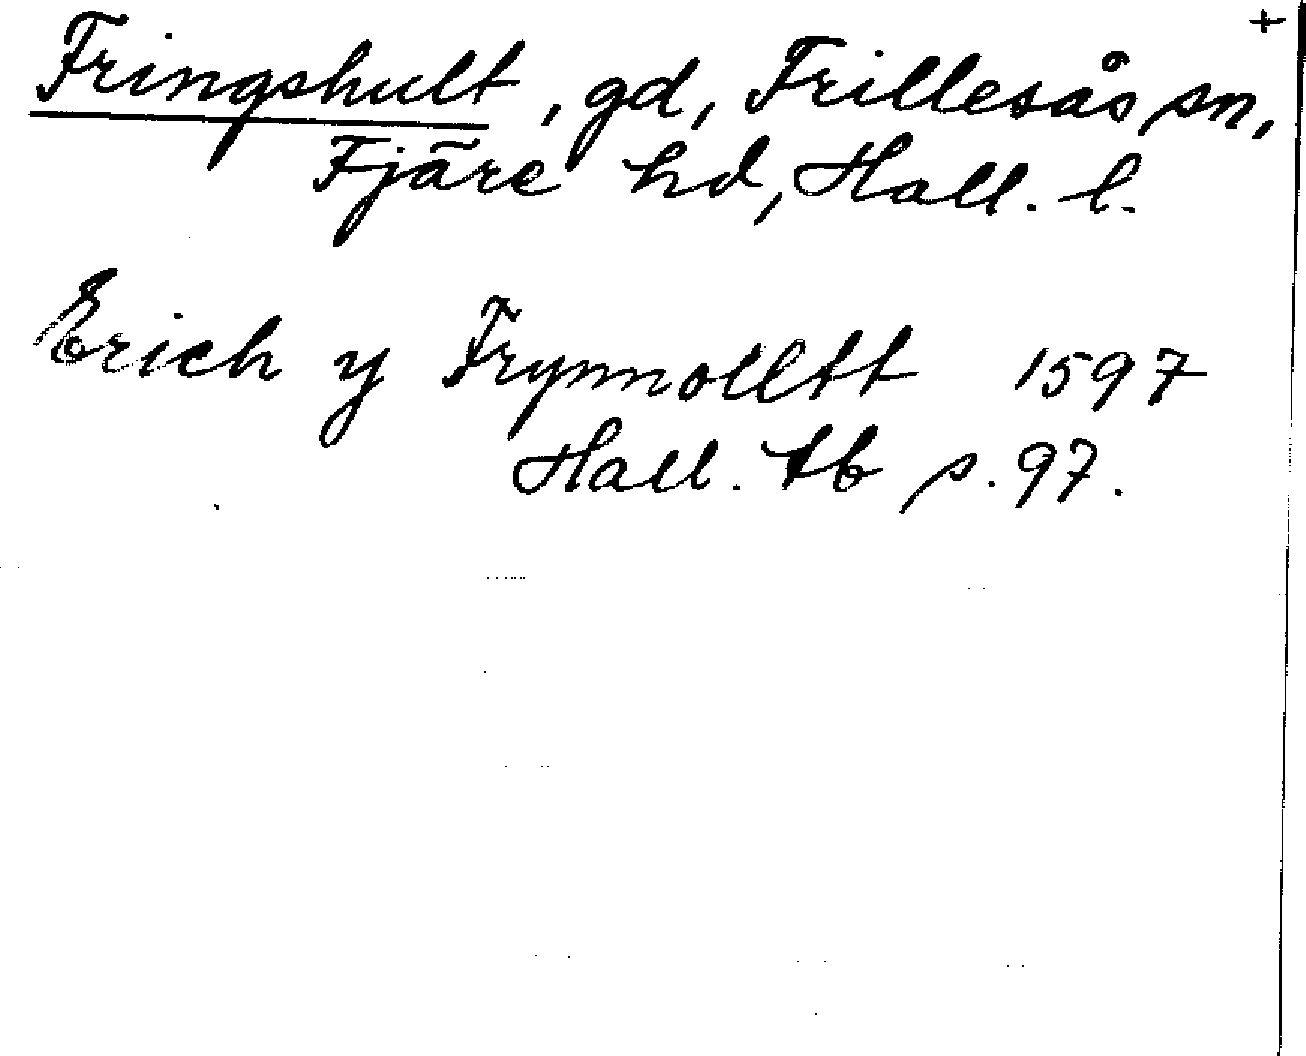 +
Fringshult, gd, Frillesås sn,
Fjäre hd, Hall. l.
Erich y Frynnolltt 1597
Hall. tb s. 97.